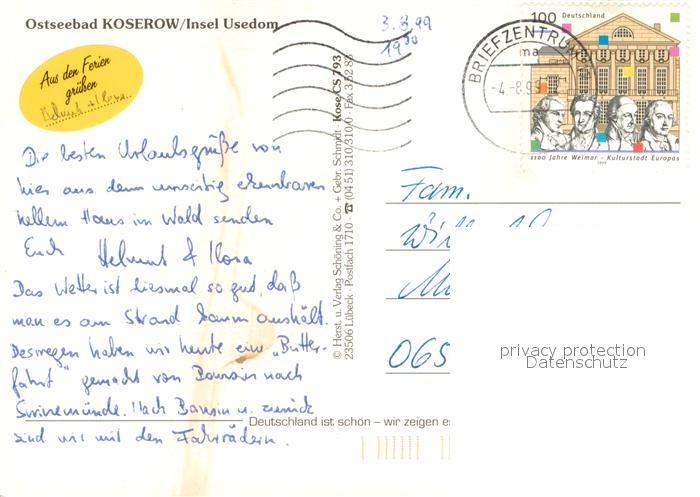 Ostseebad KOSEROW/Insel Usedom
Aus den Ferien
grüßen
Helmut + Ilona
3.8.99
19³⁰
100 Deutschland
BRIEFZENTRUM
-4.-8.99
1100 Jahre Weimar - Kulturstadt Europas
1999
Die besten Urlaubsgrüße von
hier aus dem unsertig erkennbaren
hellem Haus im Wald senden
Euch Helmut & Ilona
Das Wetter ist diesmal so gut, daß
man es am Strand kaum aushält.
Deswegen haben wir heute eine „Butter-
fahrt" gemacht von Bansin nach
Swinemünde. Nach Bansin u. zurück
sind wir mit den Fahrrädern.
© Herst. u. Verlag Schöning & Co. + Gebr. Schmidt · Kose CS 793
23506 Lübeck · Postfach 1710 ☎ (04 51) 310/310/0
Fam.
065
privacy protection
Datenschutz
Deutschland ist schön – wir zeigen es